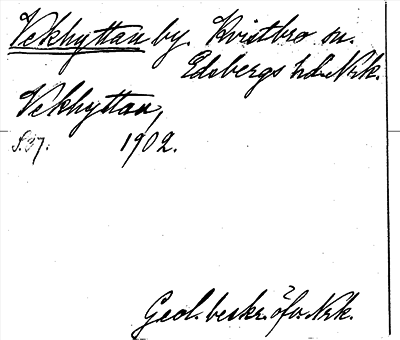 Vekhyttan by. Kvistbro sn.
Edsbergs hd. Nrk.
Vekhyttan,
S. 37. 1902.
Geol. beskr. öfv. Nrk.